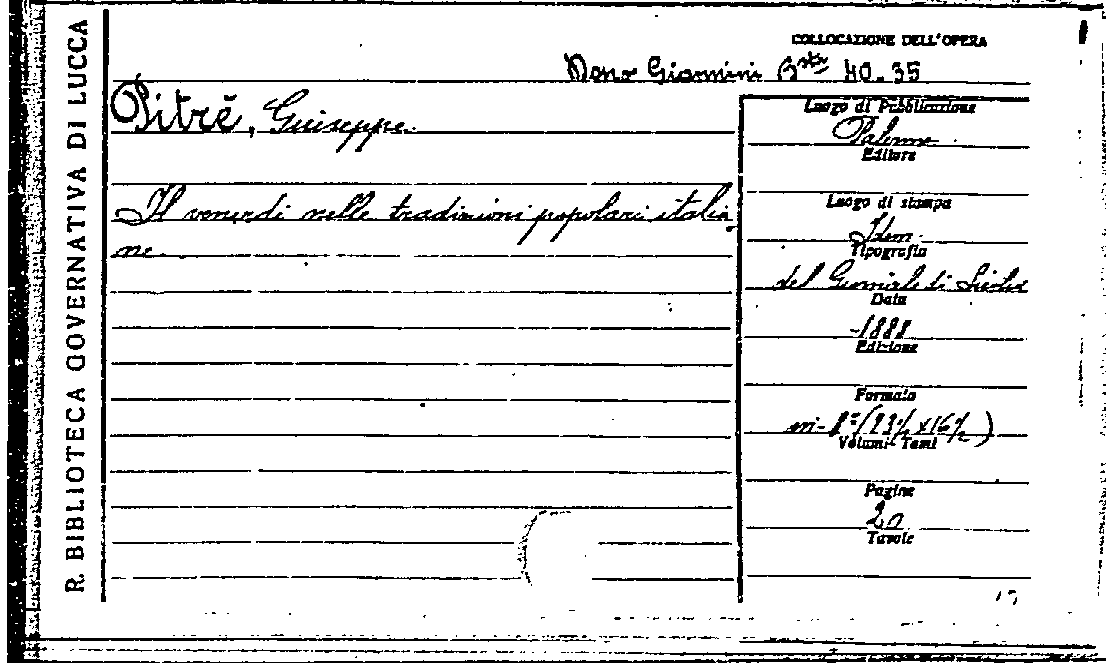 R. BIBLIOTECA GOVERNATIVA DI LUCCA
COLLOCAZIONE DELL'OPERA
Dono Giannini Bsta 40.35
Pitrè, Giuseppe.
Il venerdì nelle tradizioni popolari italia
ne.
Luogo di Pubblicazione
Palermo
Editore
Luogo di stampa
Idem
Tipografia
del Giornale di Sicilia
Data
-1888
Edizione
Formato
in-8° (23½ x 16½)
Volumi-Tomi
Pagine
20
Tavole